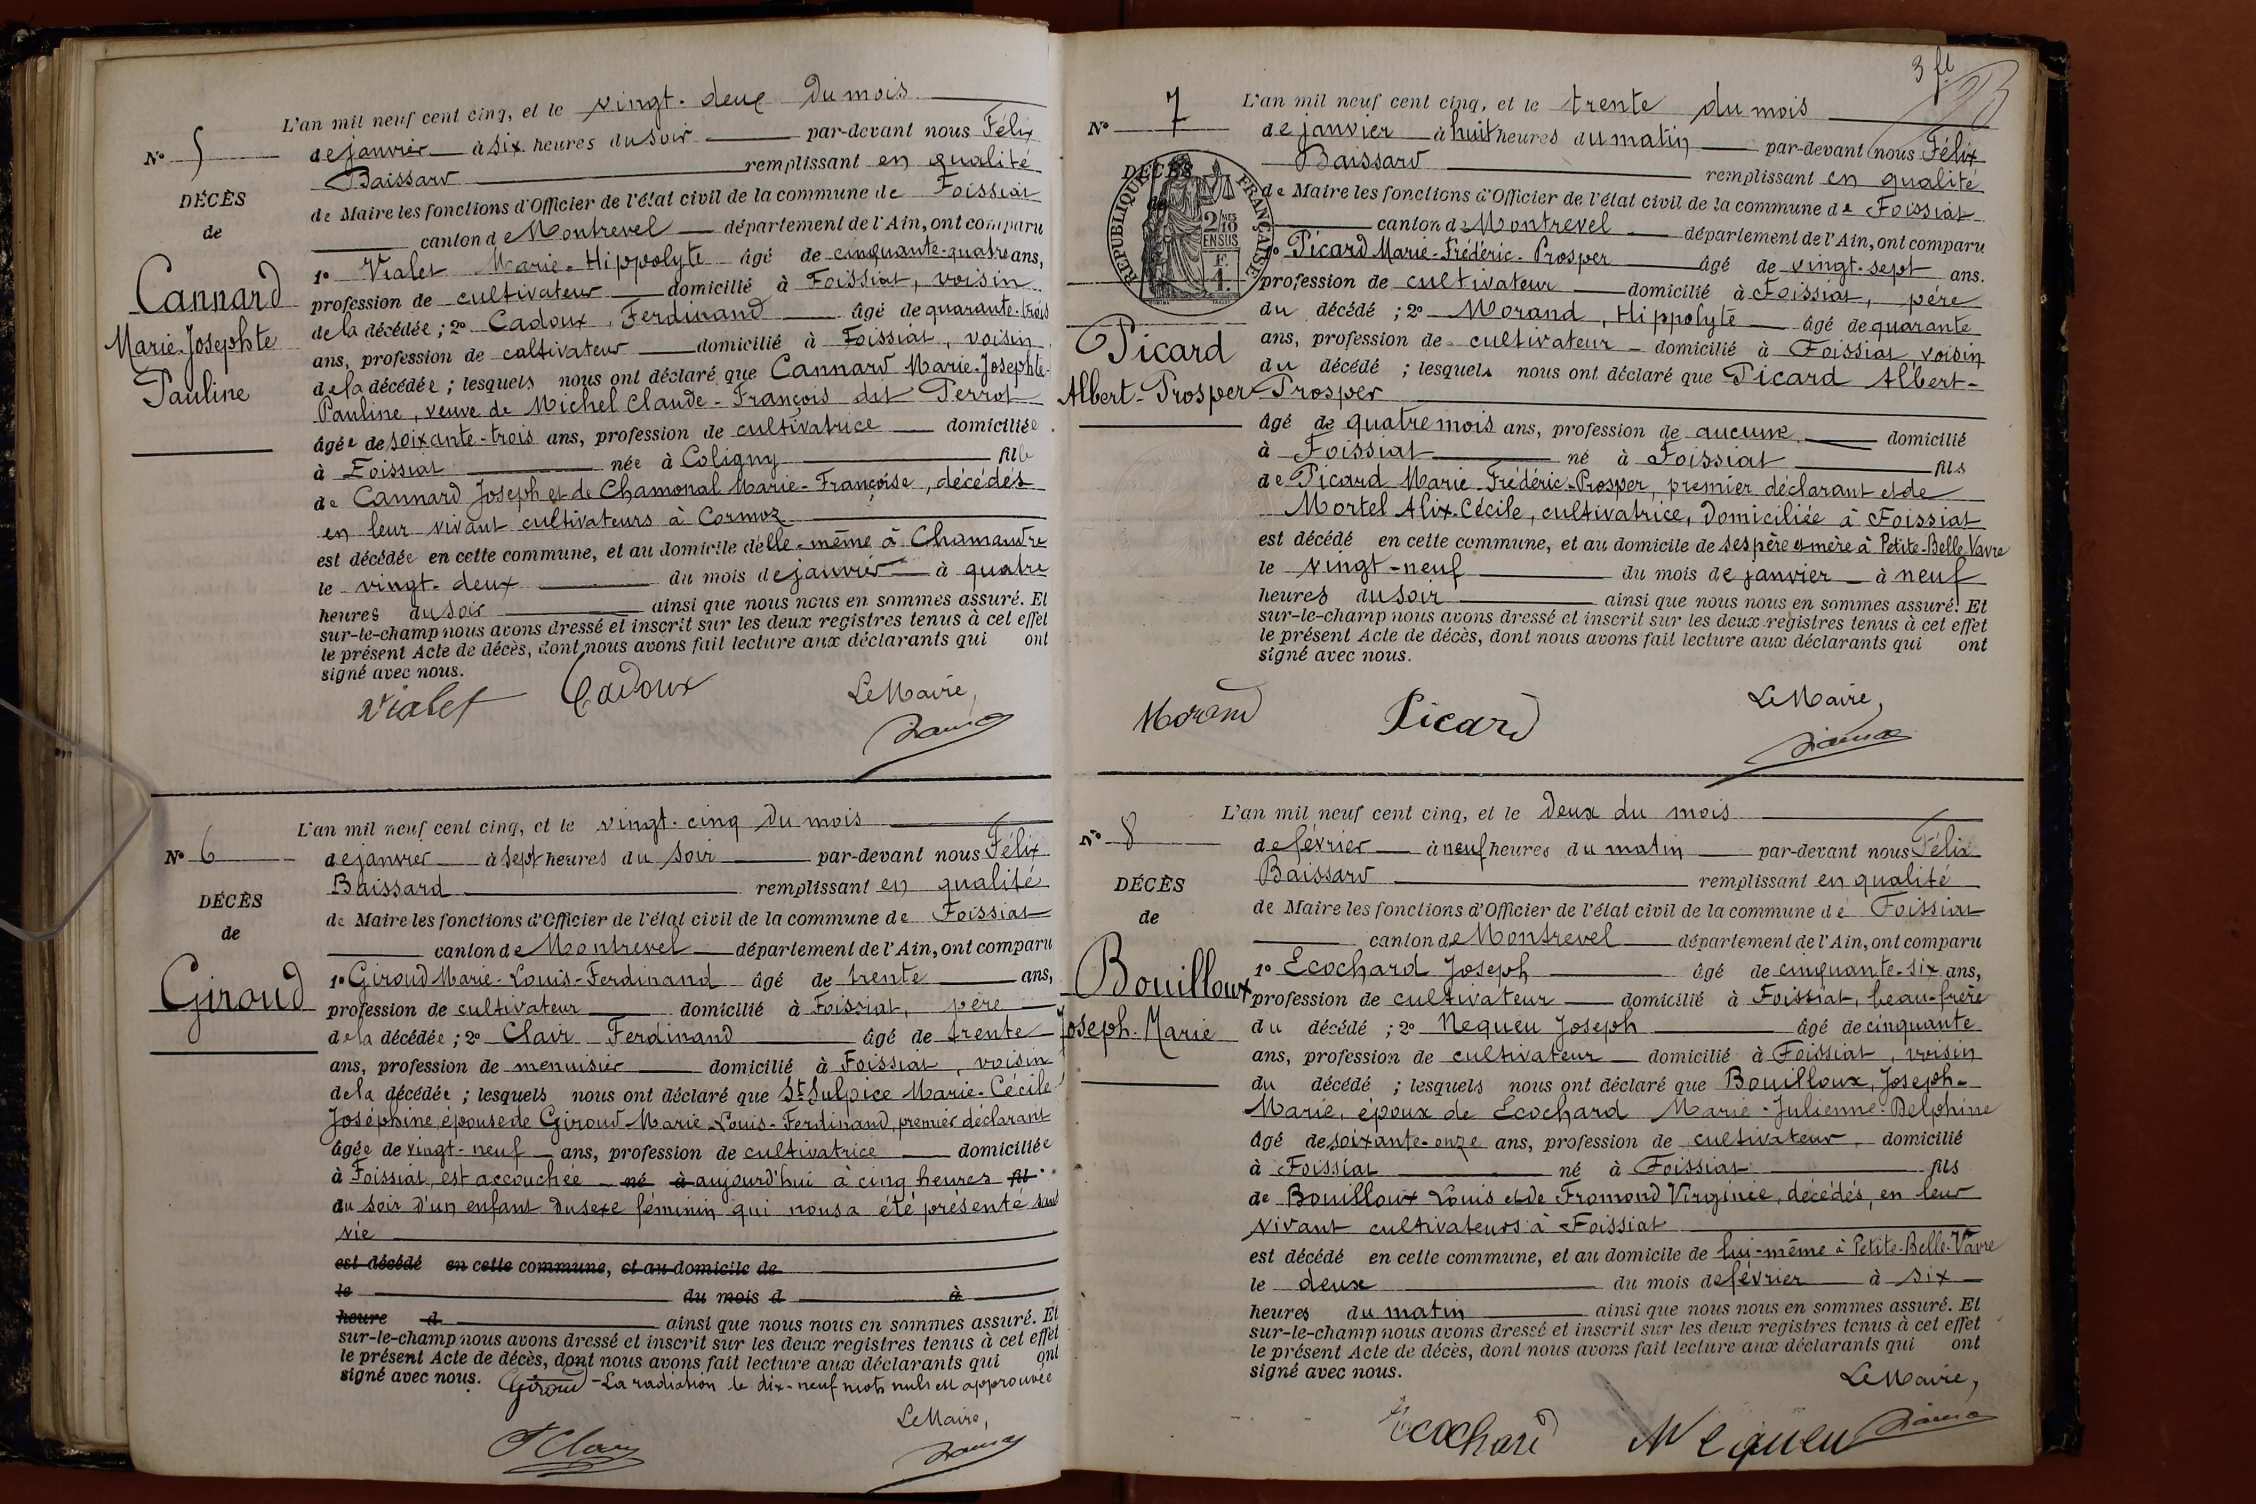 L'an mil neuf cent cinq, et le vingt-deux du mois
N° 5
de janvier à six heures du soir par-devant nous Félix
Baissard remplissant en qualité
DÉCÈS
de Maire les fonctions d'Officier de l'état civil de la commune de Foissiat
de
canton de Montrevel département de l'Ain, ont comparu
1° Vialet Marie-Hippolyte âgé de cinquante-quatre ans,
Cannard
profession de cultivateur domicilié à Foissiat, voisin
de la décédée ; 2° Cadoux, Ferdinand âgé de quarante-trois
Marie-Josephte
ans, profession de cultivateur domicilié à Foissiat, voisin
Pauline
de la décédée ; lesquels nous ont déclaré que Cannard Marie-Josephte-
Pauline, veuve de Michel Claude-François dit Perrot
âgée de soixante-trois ans, profession de cultivatrice domiciliée
à Foissiat née à Coligny fille
de Cannard Joseph et de Chamonal Marie-Françoise, décédés
en leur vivant cultivateurs à Cormoz
est décédée en cette commune, et au domicile d'elle-même à Chamandre
le vingt-deux du mois de janvier à quatre
heures du soir ainsi que nous nous en sommes assuré. Et
sur-le-champ nous avons dressé et inscrit sur les deux registres tenus à cet effet
le présent Acte de décès, dont nous avons fait lecture aux déclarants qui ont
signé avec nous.
Vialet Cadoux Le Maire,
L'an mil neuf cent cinq, et le vingt-cinq du mois
N° 6
de janvier à sept heures du soir par-devant nous Félix
Baissard remplissant en qualité
DÉCÈS
de Maire les fonctions d'Officier de l'état civil de la commune de Foissiat
de
canton de Montrevel département de l'Ain, ont comparu
1° Giroud Marie-Louis-Ferdinand âgé de trente ans,
Giroud
profession de cultivateur domicilié à Foissiat, père
de la décédée ; 2° Clair Ferdinand âgé de trente
ans, profession de menuisier domicilié à Foissiat, voisin
de la décédée ; lesquels nous ont déclaré que St Sulpice Marie-Cécile
Joséphine, épouse de Giroud Marie-Louis-Ferdinand, premier déclarant
âgée de vingt-neuf ans, profession de cultivatrice domiciliée
à Foissiat, est accouchée né à aujourd'hui à cinq heures fil
du soir d'un enfant du sexe féminin qui nous a été présenté sans
vie
est décédé en cette commune, et au domicile de
le du mois d à
heure d ainsi que nous nous en sommes assuré. Et
sur-le-champ nous avons dressé et inscrit sur les deux registres tenus à cet effet
le présent Acte de décès, dont nous avons fait lecture aux déclarants qui ont
signé avec nous. Giroud - La radiation de dix-neuf mots nuls est approuvée
Le Maire,
F Clair
3 fl
L'an mil neuf cent cinq, et le trente du mois
N° 7
de janvier à huit heures du matin par-devant nous Félix
Baissard remplissant en qualité
DÉCÈS
de Maire les fonctions d'Officier de l'état civil de la commune de Foissiat
RÉPUBLIQUE FRANÇAISE
2/10MES
EN SUS
F.
1.
canton de Montrevel département de l'Ain, ont comparu
1° Picard Marie-Frédéric-Prosper âgé de vingt-sept ans.
profession de cultivateur domicilié à Foissiat, père
du décédé ; 2° Morand, Hippolyte âgé de quarante
Picard
ans, profession de cultivateur domicilié à Foissiat, voisin
du décédé ; lesquels nous ont déclaré que Picard Albert-
Albert-Prosper
Prosper
âgé de quatre mois ans, profession de aucune domicilié
à Foissiat né à Foissiat fils
de Picard Marie-Frédéric-Prosper, premier déclarant et de
Mortel Alix-Cécile, cultivatrice, domiciliée à Foissiat
est décédé en cette commune, et au domicile de ses père et mère à Petite-Belle Vavre
le vingt-neuf du mois de janvier à neuf
heures du soir ainsi que nous nous en sommes assuré. Et
sur-le-champ nous avons dressé et inscrit sur les deux registres tenus à cet effet
le présent Acte de décès, dont nous avons fait lecture aux déclarants qui ont
signé avec nous.
Morand Picard Le Maire,
L'an mil neuf cent cinq, et le deux du mois
N° 8
de février à neuf heures du matin par-devant nous Félix
Baissard remplissant en qualité
DÉCÈS
de Maire les fonctions d'Officier de l'état civil de la commune de Foissiat
de
canton de Montrevel département de l'Ain, ont comparu
1° Ecochard Joseph âgé de cinquante-six ans,
Bouilloux
profession de cultivateur domicilié à Foissiat, beau-frère
du décédé ; 2° Nequeu Joseph âgé de cinquante
Joseph-Marie
ans, profession de cultivateur domicilié à Foissiat, voisin
du décédé ; lesquels nous ont déclaré que Bouilloux, Joseph-
Marie, époux de Ecochard Marie-Julienne-Delphine
âgé de soixante-onze ans, profession de cultivateur domicilié
à Foissiat né à Foissiat fils
de Bouilloux Louis et de Fromond Virginie, décédés, en leur
vivant cultivateurs à Foissiat
est décédé en cette commune, et au domicile de lui-même à Petite-Belle-Vavre
le deux du mois de février à six
heures du matin ainsi que nous nous en sommes assuré. Et
sur-le-champ nous avons dressé et inscrit sur les deux registres tenus à cet effet
le présent Acte de décès, dont nous avons fait lecture aux déclarants qui ont
signé avec nous.
Le Maire,
Ecochard Nequeu